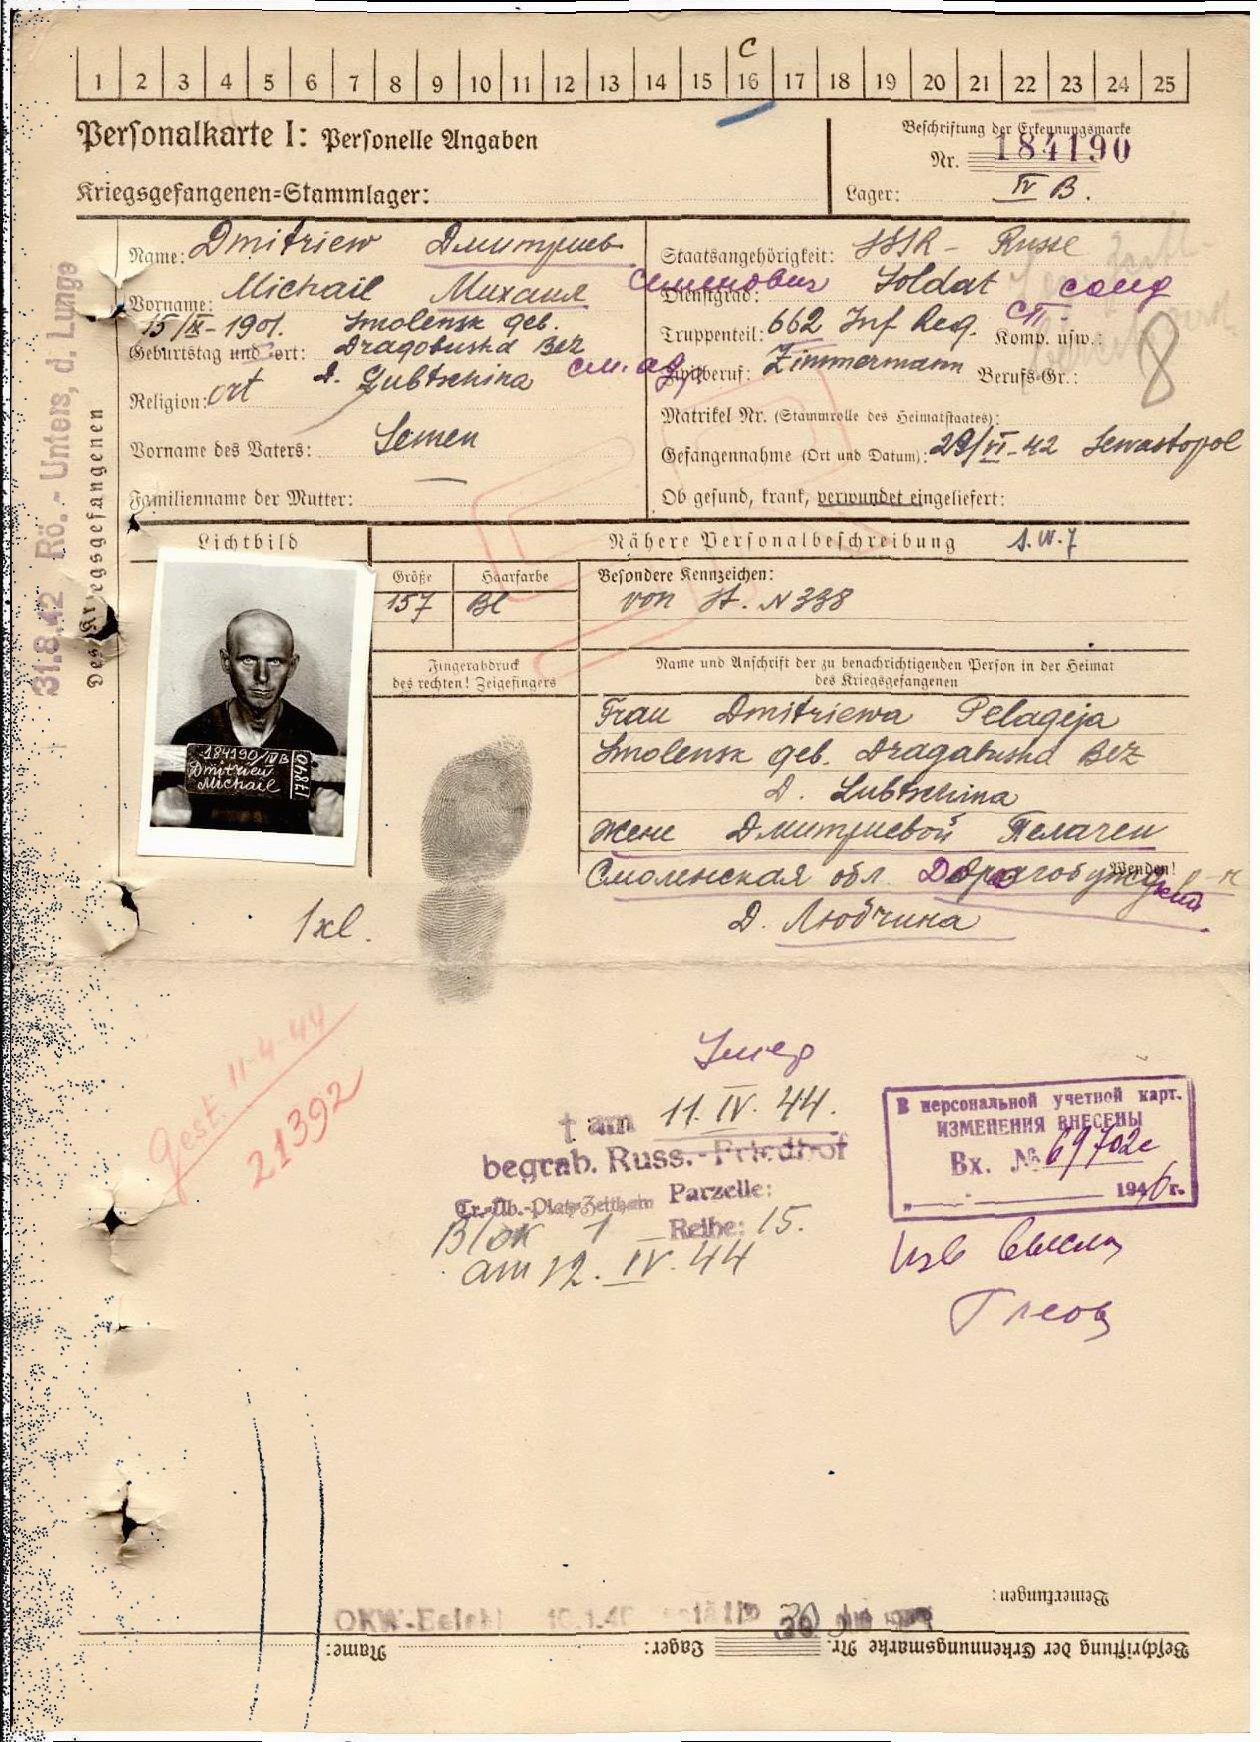 C
1 2 3 4 5 6 7 8 9 10 11 12 13 14 15 16 17 18 19 20 21 22 23 24 25
Personalkarte I: Personelle Angaben
Beschriftung der Erkennungsmarke
Nr. 184190
Kriegsgefangenen=Stammlager:
Lager: IV B.
Name: Dmitriew Дмитриев
Vorname: Michail Михаил Семенович
15/IX-1901. Smolensk geb.
Geburtstag und ort: Dragobushd Bez
Religion: ort D. Lubtschina
Vorname des Vaters: Semen
Familienname der Mutter: —
Staatsangehörigkeit: SSSR - Russe
Dienstgrad: Soldat солд
Truppenteil: 662 Inf Reg. Komp. usw.: 8
Zivilberuf: Zimmermann Berufs-Gr.:
Matrikel Nr. (Stammrolle des Heimatstaates):
Gefangennahme (Ort und Datum): 29/VI-42 Sewastopol
Ob gesund, krank, verwundet eingeliefert:
31.8.42 Rö.-Unters, d. Lunge
Des Kriegsgefangenen
Lichtbild
Nähere Personalbeschreibung
Größe Haarfarbe Besondere Kennzeichen:
157 Bl von St. N 338
184190/IVB
Dmitriew
Michail
Fingerabdruck
des rechten! Zeigefingers
Name und Anschrift der zu benachrichtigenden Person in der Heimat
des Kriegsgefangenen
Frau Dmitriewa Pelageja
Smolensk geb. Dragabushd Bez
D. Lubtschina
Жене Дмитриевой Пелагеи
Wenden!
Смоленская обл. Дорогобужский р-н
Д. Любчина
1xl.
gest. 11-4-44
21392
Умер
† am 11. IV. 44.
begrab. Russ.-Friedhof
Tr.-Üb.-Platz Zeithain Parzelle:
Blok 1 Reihe: 15.
am 12. IV. 44
В персональной учетной карт.
ИЗМЕНЕНИЯ ВНЕСЕНЫ
Вх. № 69702с
1946г.
Bemerkungen:
OKW-Befehl
Beschriftung der Erkennungsmarke Nr. Lager: Name: